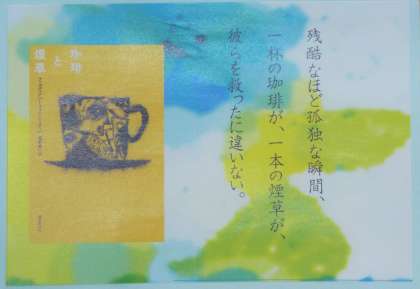 残酷なほど孤独な瞬間、
一杯の珈琲が、一本の煙草が、
彼らを救ったに違いない。
珈琲
と
煙草